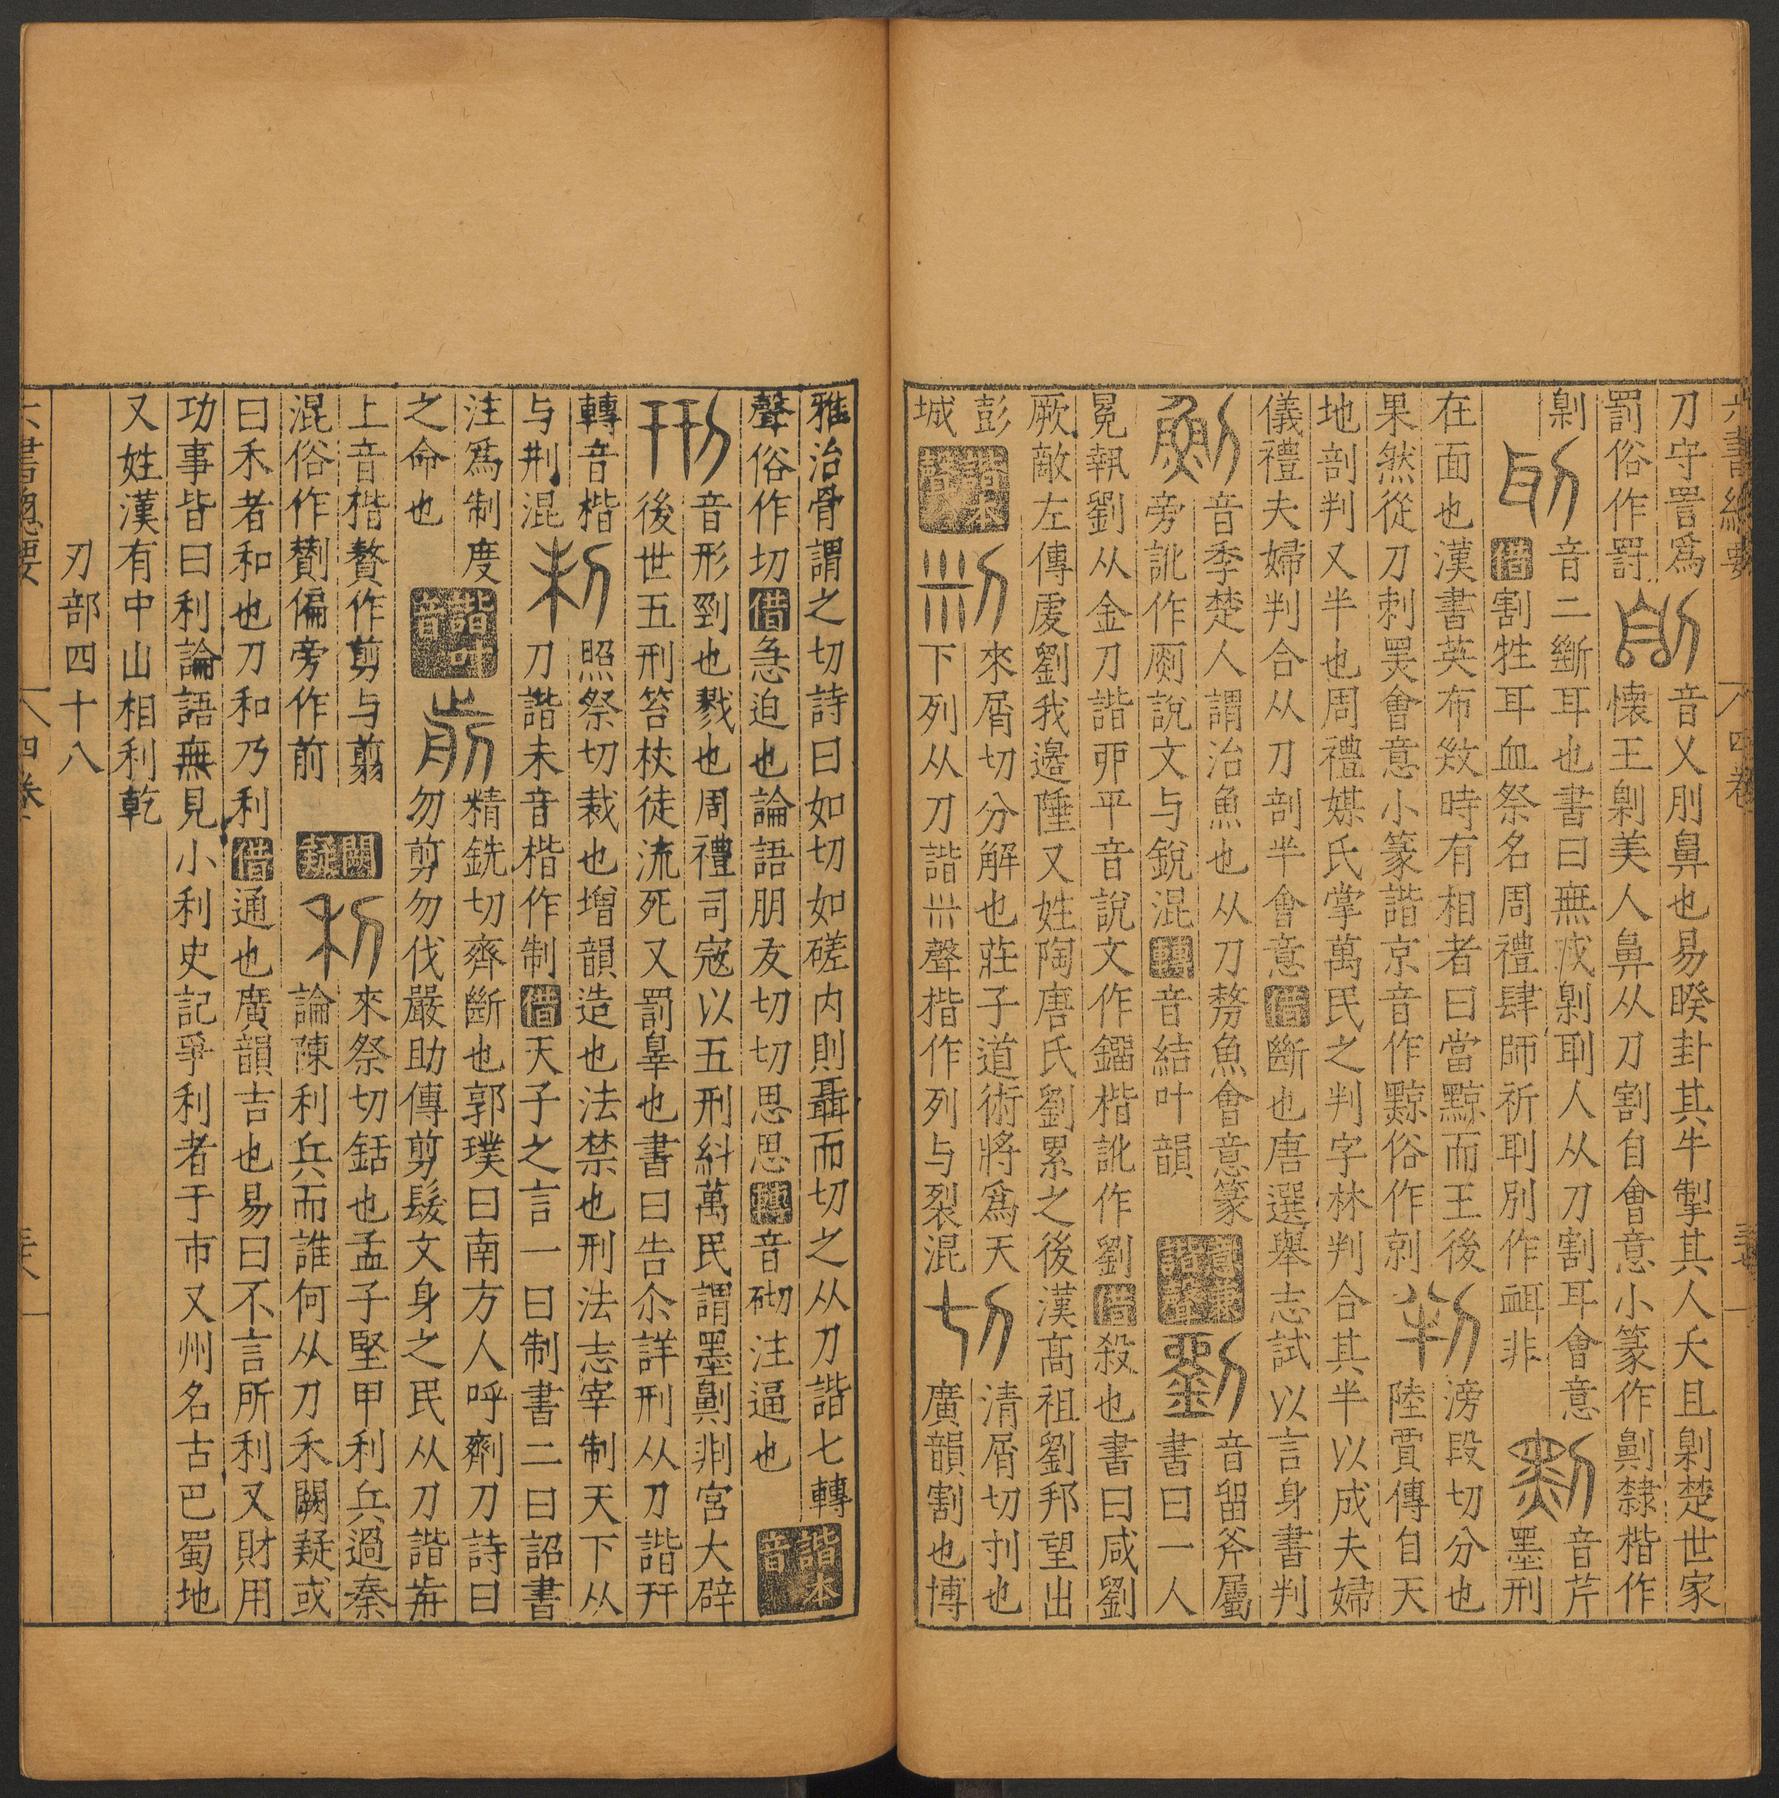 六書緫要
四卷
刀守詈爲 音乂刖鼻也易睽卦其牛掣其人夭且劓楚世家
罰俗作罸 懷王劓美人鼻从刀割自會意小篆作劓隸楷作
劓 音二斷耳也書曰無或劓刵人从刀割耳會意 音芹
借割牲耳血祭名周禮肆師祈刵別作衈非 墨刑
在面也漢書英布敚時有相者曰當黥而王後 滂段切分也
果然從刀刺罢會意小篆諧京音作黥俗作剠 陸賈傳自天
地剖判又半也周禮媒氏掌萬民之判字林判合其半以成夫婦
儀禮夫婦判合从刀剖半會意借斷也唐選舉志試以言身書判
音季楚人謂治魚也从刀剺魚會意篆 音畱斧屬
旁訛作廁說文与銳混轉音結叶韻 書曰一人
冕執劉从金刀諧丣平音說文作鎦楷訛作劉借殺也書曰咸劉
厥敵左傳虔劉我邊陲又姓陶唐氏劉累之後漢高祖劉邦望出
彭 來屑切分解也莊子道術將爲天 清屑切刌也
城 下列从刀諧𡿪聲楷作列与裂混 廣韻割也博
雅治骨謂之切詩曰如切如磋内則聶而切之从刀諧七轉 諧本
聲俗作切借急迫也論語朋友切切思思轉音砌注逼也 音
音形剄也戮也周禮司寇以五刑糾萬民謂墨劓剕宮大辟
後世五刑笞杖徒流死又罰辠也書曰告尒詳刑从刀諧幵
轉音楷 照祭切裁也增韻造也法禁也刑法志宰制天下从
与荆混 刀諧未音楷作制借天子之言一曰制書二曰詔書
注爲制度 諧叶 精銑切齊斷也郭璞曰南方人呼劑刀詩曰
之命也 音 勿剪勿伐嚴助傳剪髮文身之民从刀諧歬
上音楷贅作剪与翦 闕 來祭切銛也孟子堅甲利兵過秦
混俗作鬋偏旁作前 疑 論陳利兵而誰何从刀禾闕疑或
曰禾者和也刀和乃利借通也廣韻吉也易曰不言所利又財用
功事皆曰利論語無見小利史記爭利者于市又州名古巴蜀地
又姓漢有中山相利乾
刃部四十八
六書緫要
四卷